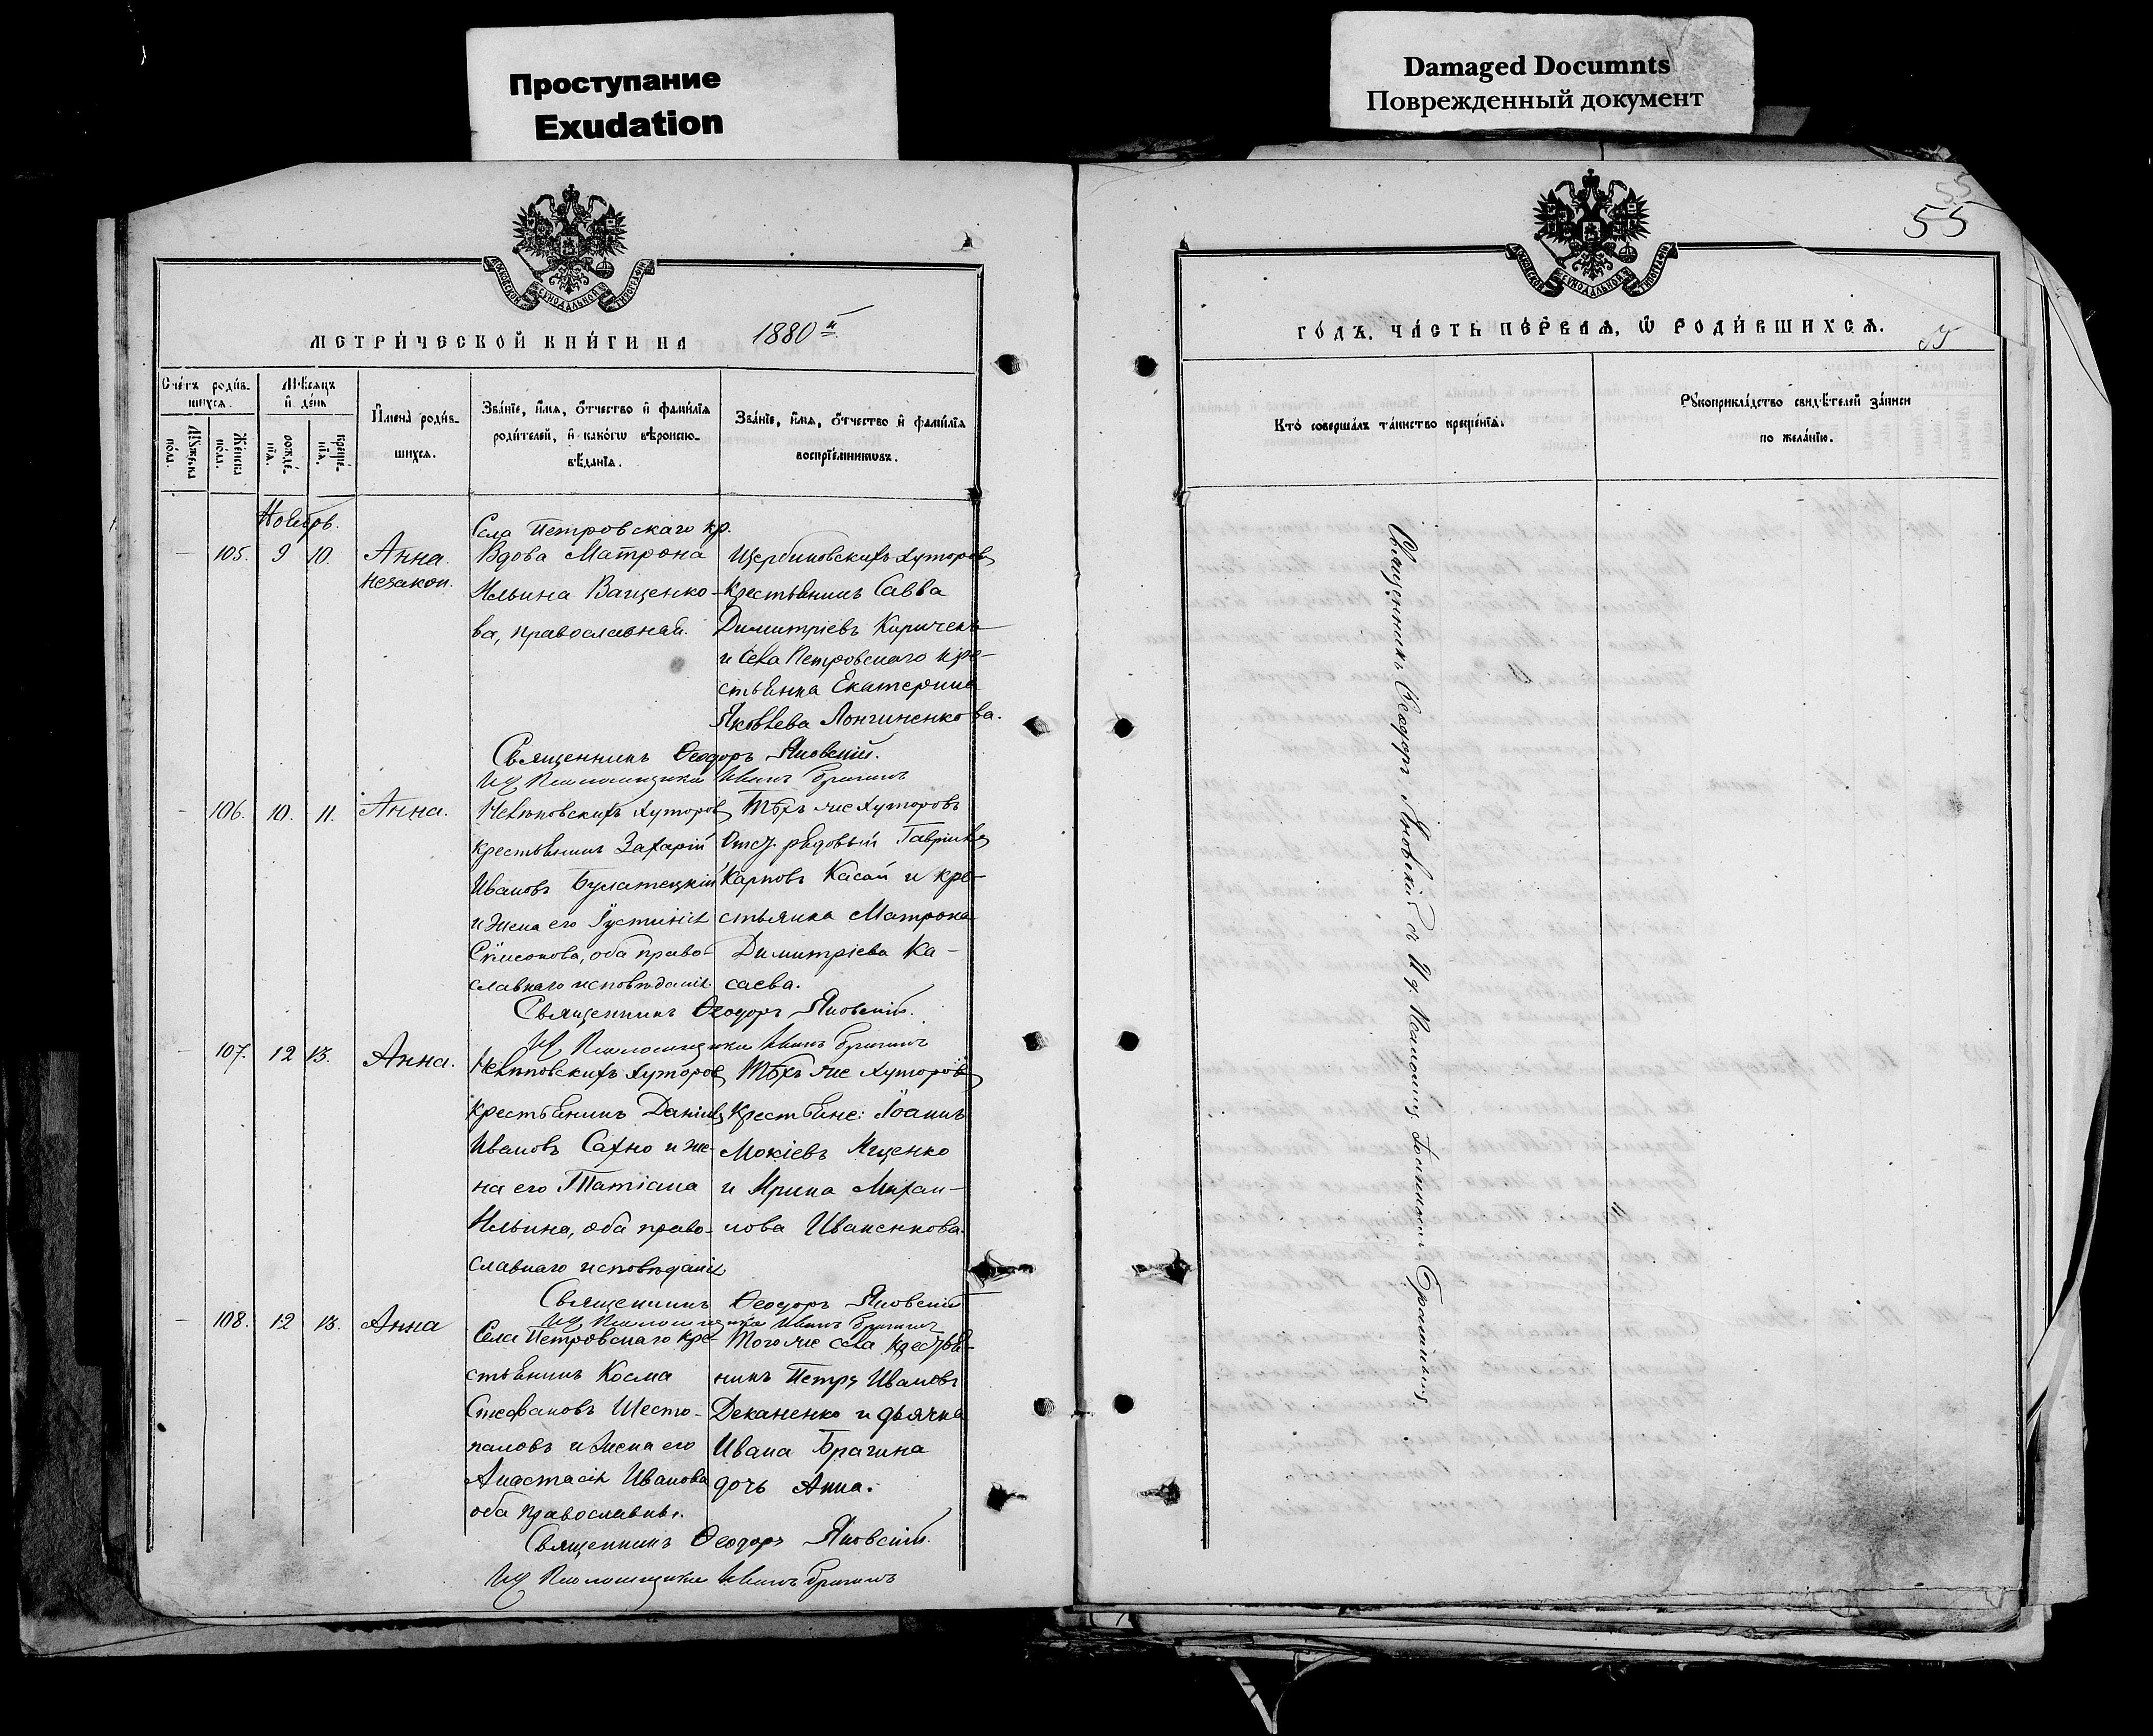 Проступание
Exudation
Damaged Documnts
Поврежденный документ
МОСКОВСКОЙ СѴНОДАЛЬНОЙ ТИПОГРАФІИ
МЕТРИ́ЧЕСКОЙ КНИ́ГИ НА 1880 й
Сче́тъ роди́в-
шихся.
Мѣ́сяцъ
и де́нь
Му́жеска
по́ла.
Же́нска
по́ла.
рожде́-
нїя.
креще́-
нїя.
Имена̀ роди́в-
шихся.
Зва́нїе, и́мя, о́тчество и фами́лїя
роди́телей, и како́гѡ вѣроиспо-
вѣ́данїя.
Зва́нїе, и́мя, о́тчество и фами́лїя
воспрїе́мникѡвъ.
Ноябрь.
105. 9 10. Анна.
незакон.
Села Петровскаго кр.
Вдова Матрона
Ильина Ващенко-
ва, православная.
Щербиновскихъ хуторовъ
крестьянинъ Савва
Димитріевъ Киричекъ
и села Петровскаго кре-
стьянка Екатерина
Яковлева Лонгиненкова.
Священникъ Ѳеодоръ Яновскій.
ИД Псаломщика Иванъ Брагинъ
106. 10. 11. Анна.
хуторовъ
крестьянинъ Захарій
Ивановъ Булатецкій
и жена его Іустинія
оба право-
славнаго исповѣданія.
Тѣхъ же хуторовъ
Отст. рядовый Гавріилъ
Карповъ Касай и кре-
стьянка Матрона
Димитріева Ка-
саева.
Священникъ Ѳеодоръ Яновскій.
ИД Псаломщика Иванъ Брагинъ
107. 12 13. Анна.
хуторовъ
крестьянинъ Даніилъ
Ивановъ Сахно и же-
на его Татіана
Ильина, оба право-
славнаго исповѣданія
Тѣхъ же хуторовъ
крестьяне: Іоаннъ
Мокіевъ Ищенко
и Ирина Михаи-
лова Иваненкова.
Священникъ Ѳеодоръ Яновскій
ИД Псаломщика Иванъ Брагинъ
108. 12 13. Анна
Села Петровскаго кре-
стьянинъ Косма
Стефановъ Шесто-
паловъ и жена его
Анастасія Иванова
оба православны.
Того же села крестья-
нинъ Петръ Ивановъ
Деканенко и дьячка
Ивана Брагина
дочь Анна.
Священникъ Ѳеодоръ Яновскій.
ИД Псаломщика Иванъ Брагинъ
55
55
МОСКОВСКОЙ СѴНОДАЛЬНОЙ ТИПОГРАФІИ
ГО́ДЪ, ЧА́СТЬ ПЕ́РВАЯ, Ѡ РОДИ́ВШИХСЯ.
Кто̀ соверша́лъ та́инство креще́нїя.
Рꙋкоприкла́дство свидѣ́телей за́писи
по жела́нїю.
Священникъ Ѳеодоръ Яновскій съ И д. Псаломщ. Іоанномъ Брагинымъ